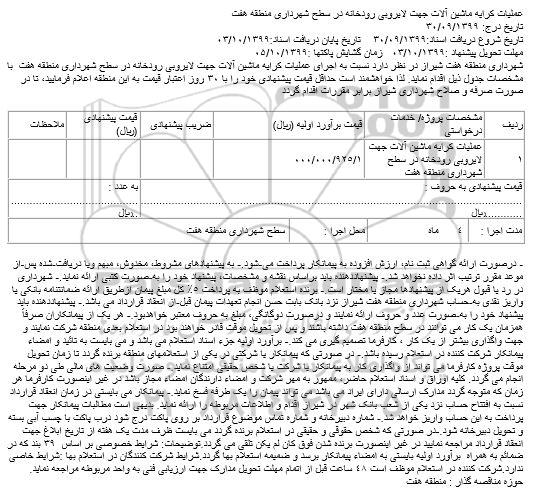 عملیات کرایه ماشین آلات جهت لایروبی رودخانه در سطح شهرداری منطقه هفت
تاریخ درج: ۳۰/۰۹/۱۳۹۹
تاریخ شروع دریافت اسناد: ۳۰/۰۹/۱۳۹۹ تاریخ پایان دریافت اسناد: ۰۳/۱۰/۱۳۹۹
مهلت تحویل پیشنهاد: ۰۳/۱۰/۱۳۹۹ زمان گشایش پاکتها: ۰۵/۱۰/۱۳۹۹
شهرداری منطقه هفت شیراز در نظر دارد نسبت به اجرای عملیات کرایه ماشین آلات جهت لایروبی رودخانه در سطح شهرداری منطقه هفت با
مشخصات جدول ذیل اقدام نماید. لذا خواهشمند است حداقل قیمت پیشنهادی خود را با ۳۰ روز اعتبار قیمت به این منطقه اعلام فرمایید، تا در
صورت صرفه و صلاح شهرداری شیراز برابر مقررات اقدام گردد
ردیف مشخصات پروژه/ خدمات درخواستی قیمت برآورد اولیه (ریال) ضریب پیشنهادی قیمت پیشنهادی (ریال) ملاحظات
۱ عملیات کرایه ماشین آلات جهت لایروبی رودخانه در سطح شهرداری منطقه هفت ۰۰۰/۰۰۰/۹۲۵/۱
قیمت پیشنهادی به حروف : به عدد :
............ریال ............ریال
مدت اجرا : ۴ ماه محل اجرا : سطح شهرداری منطقه هفت
ـ درصورت ارائه گواهی ثبت نام، ارزش افزوده به پیمانکار پرداخت می‌شود.ـ به پیشنهادهای مشروط، مخدوش، مبهم ویا دریافت‌شده پس‌از
موعد مقرر ترتیب اثر داده نخواهد شد.ـ پیشنهاددهنده باید براساس نقشه و مشخصات، پیشنهاد خود را به‌صورت کتبی ارائه نماید.ـ شهرداری
در رد یا قبول هریک از پیشنهادها مجاز یا مختار است.ـ برنده استعلام موظف به پرداخت ۵٪ کل مبلغ پیمان ازطریق ارائه ضمانتنامه بانکی یا
واریز نقدی به‌حساب شهرداری منطقه هفت شیراز نزد بانک بابت حسن انجام تعهدات پیمان قبل‌از انعقاد قرارداد می باشد.ـ پیشنهاددهنده باید
پیشنهاد خود را به‌صورت عدد و حروف ارائه نمایند و درصورت دوگانگی، مبلغ به حروف معتبر خواهدبود.ـ هر یک از پیمانکاران صرفاً
همزمان یک کار می توانند در سطح منطقه هفت داشته باشند و پس از تحویل موقت قادر خواهند بود در استعلام بعدی منطقه شرکت نمایند و
جهت واگذاری بیشتر از یک کار ، کارفرما تصمیم گیری می کند.ـ برآورد اولیه جزء اسناد استعلام می باشد و می بایست به تائید و امضاء
پیمانکار شرکت کننده در استعلام رسیده باشد.ـ در صورتی که پیمانکار یا شرکتی در یکی از استعلامهای منطقه برنده گردد تا زمان تحویل
موقت پروژه کارفرما می تواند از واگذاری کار به پیمانکار یا شرکت یا شخص حقیقی امتناع نماید.ـ صورت وضعیت های مالی طی دو مرحله
انجام می گردد. کلیه اوراق و اسناد استعلام حاضر، ممهور به مهر شرکت و امضاء دارندگان امضاء مجاز باشد در غیر اینصورت کارفرما هر
زمان که متوجه گردد مدارک ارسالی دارای ایراد می باشد می تواند پیمان را یک‌طرفه فسخ نماید.ـ پیمانکار می بایستی در زمان انعقاد قرارداد
نسبت به افتتاح حساب نزد یکی از شعب بانک شهر در شیراز اقدام و اطلاعات مربوطه را ارائه نماید. بدیهی است مطالبات پیمانکار جهت
پرداخت به این حساب واریز خواهد شد.ـ شماره دبیرخانه و شماره تماس موضوع قرارداد بر روی پاکت درج شود درب پاکت با چسب آبی بسته
و تحویل دبیرخانه شود.ـدر صورتی که شخص حقوقی و حقیقی در استعلام برنده گردد می بایست ظرف مدت یک هفته از تاریخ ابلاغ جهت
انعقاد قرارداد مراجعه نمایید در غیر اینصورت برنده شدن فوق کان لم یکن تلقی می گردد.توضیحات: شرایط خصوصی بر اساس ۳۹ بند که در
ضمائم به همراه برآورد اولیه بایستی به امضاء پیمانکار برسد و ضمیمه استعلام بها گردد.شرایط شرکت کنندگان در استعلام بها :شرایط خاصی
ندارد.شرکت کننده در استعلام موظف است ۴۸ ساعت قبل از اتمام مهلت تحویل مدارک جهت ارزیابی فنی به واحد مربوطه مراجعه نماید.
حوزه مناقصه گذار : منطقه هفت